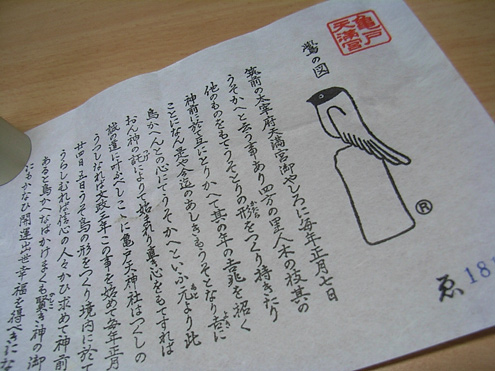 亀戸
天満宮
鷽の図
®
ゑ 18
筑前の太宰府天満宮御やしろに毎年正月七日
うそかへと云う事あり四方の里人木の枝其の
他のものもてうそとりの形をつくり持きたり
神前に於て互にとりかへて其の年の吉兆を招く
ことになん是や今迄のあしきもうそとなり吉に
鳥かへんとの心にてうそかへといふ元より此
おん神の託によりて始まり真心をもてすれば
誠の道に叶ふべしこゝに亀戸天神社はつくしの
うつしなれば文政三年この事を始めて毎年正月
廿四五日うそ鳥の形をつくり境内に於て
うらしむれば信心の人々かひ求めて神前
あると鳥かへなばかけまくも賢き神の御
にもかなひ開運出世幸福を得べきにな